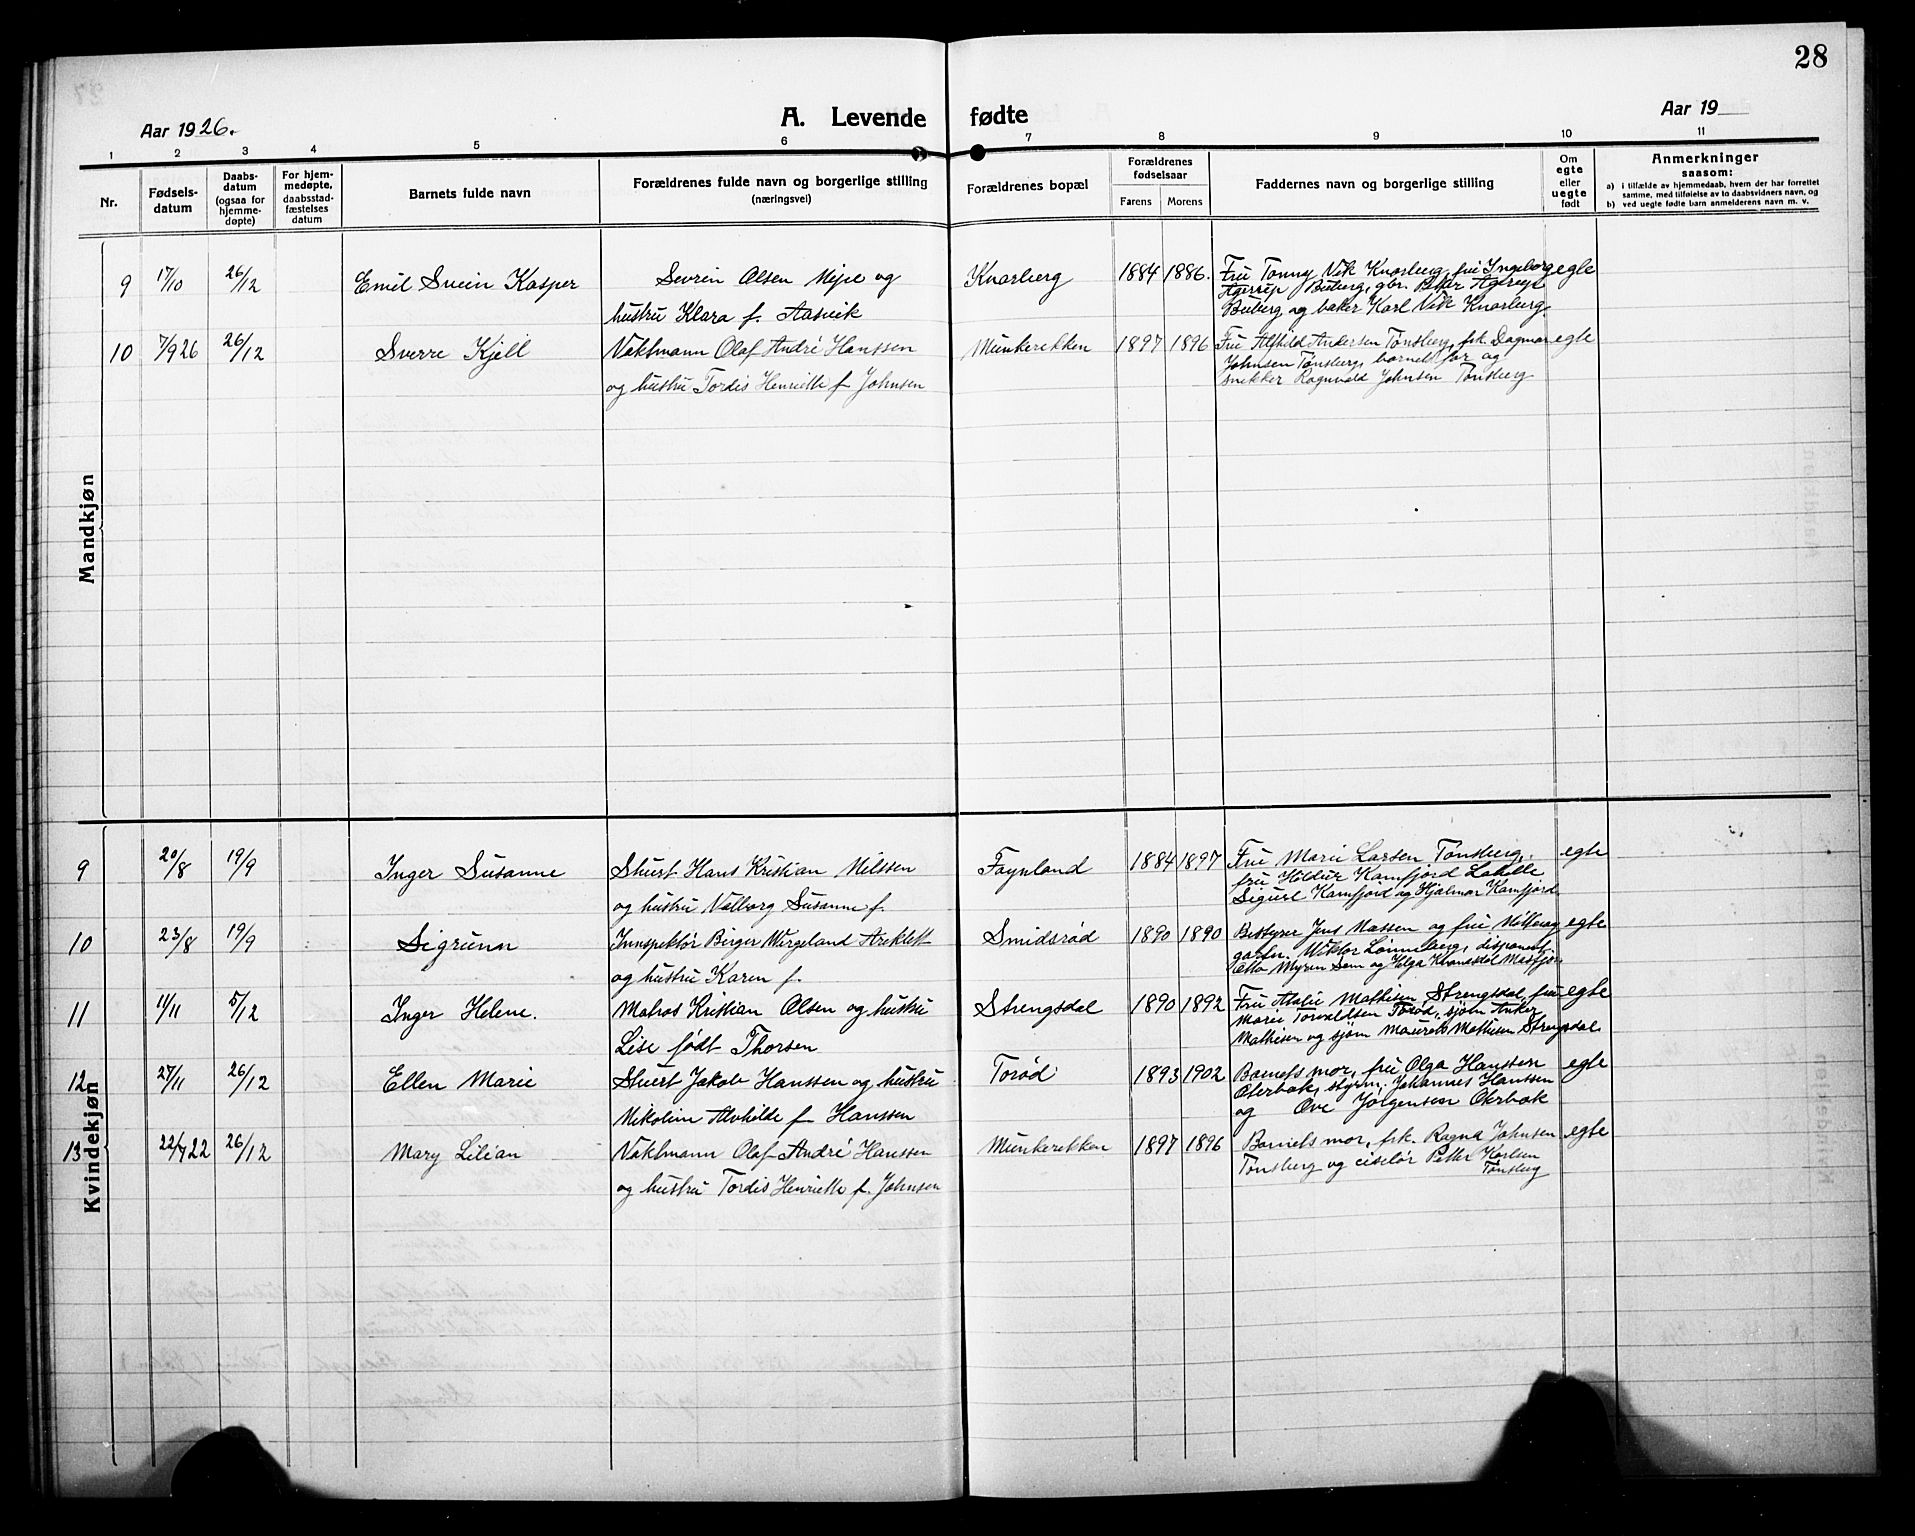 28
A. Levende fødte
Aar 1926.
Aar 19
1 2 3 4 5 6 7 8 9 10 11
Nr.
Fødsels-
datum
Daabs-
datum
(ogsaa for
hjemme-
døpte)
For hjem-
medøpte,
daabsstad-
fæstelses
datum
Barnets fulde navn
Forældrenes fulde navn og borgerlige stilling
(næringsvei)
Forældrenes bopæl
Forældrenes
fødselsaar
Farens Morens
Faddernes navn og borgerlige stilling
Om
egte
eller
uegte
født
Anmerkninger
saasom:
a) i tilfælde av hjemmedaab, hvem der har forrettet
samme, med tilføielse av to daabsvidners navn, og
b) ved uegte fødte barn anmelderens navn m. v.
Mandkjøn
9 17/10 26/12 Emil Svein Kasper Sevrin Olsen og
hustru Klara f. Aasvik
Knarberg 1884 1886.
Fru Tonny Vik Knarberg, fru Ingeborg
Agerrup Buberg, gbr. Peter
Buberg og baker Karl Vik Knarberg.
egte
10 7/9 26 26/12 Sverre Kjell Vaktmann Olaf André Hanssen
og hustru Tordis Henriette f. Johnsen
Munkerekken 1897 1896
Fru Alfhild Andersen Tønsberg, frk. Dagmar
Johnsen Tønsberg, barnets far og
snekker Ragnvald Johnsen Tønsberg
egte
Kvindekjøn
9 20/8 19/9 Inger Susanne Stuert Hans Kristian Nilssen
og hustru Valborg Susanne f.
Føynland 1884 1897
Fru Marie Larsen Tønsberg,
fru Hildur Kamfjord
Sigurd Kamfjord og Hjalmar Kamfjord
egte
10 23/8 19/9 Sigrunn Innspektør Birger Wergeland
og hustru Karen f.
Smidsrød 1890 1890
Bestyrer Jens Massen og fru
Wiktor Lønneberg, disponent
Otto Myren Sem og Helga
egte
11 11/11 5/12 Inger Helene. Matros Kristian Olsen og hustru
Lise født Thorsen
Strengsdal 1890 1892
Fru Mathisen Strengsdal, fru
Marie Torvaldsen Torød, sjøm Anker
Mathisen og sjøm Mathisen Strengsdal
egte
12 27/11 26/12 Ellen Marie Stuert Jakob Hanssen og hustru
Nikoline Alvhilde f. Hanssen
Torød 1893 1902
Barnets mor, fru Olga Hanssen
Oterbæk, styrm. Johannes Hanssen
og Ove Jørgensen Oterbæk
egte
13 22/7 22 26/12 Mary Lilian Vaktmann Olaf André Hanssen
og hustru Tordis Henriette f. Johnsen
Munkerekken 1897 1896
Barnets mor, frk. Ragna Johnsen
Tønsberg og ciselør Petter Karlsen
Tønsberg
egte